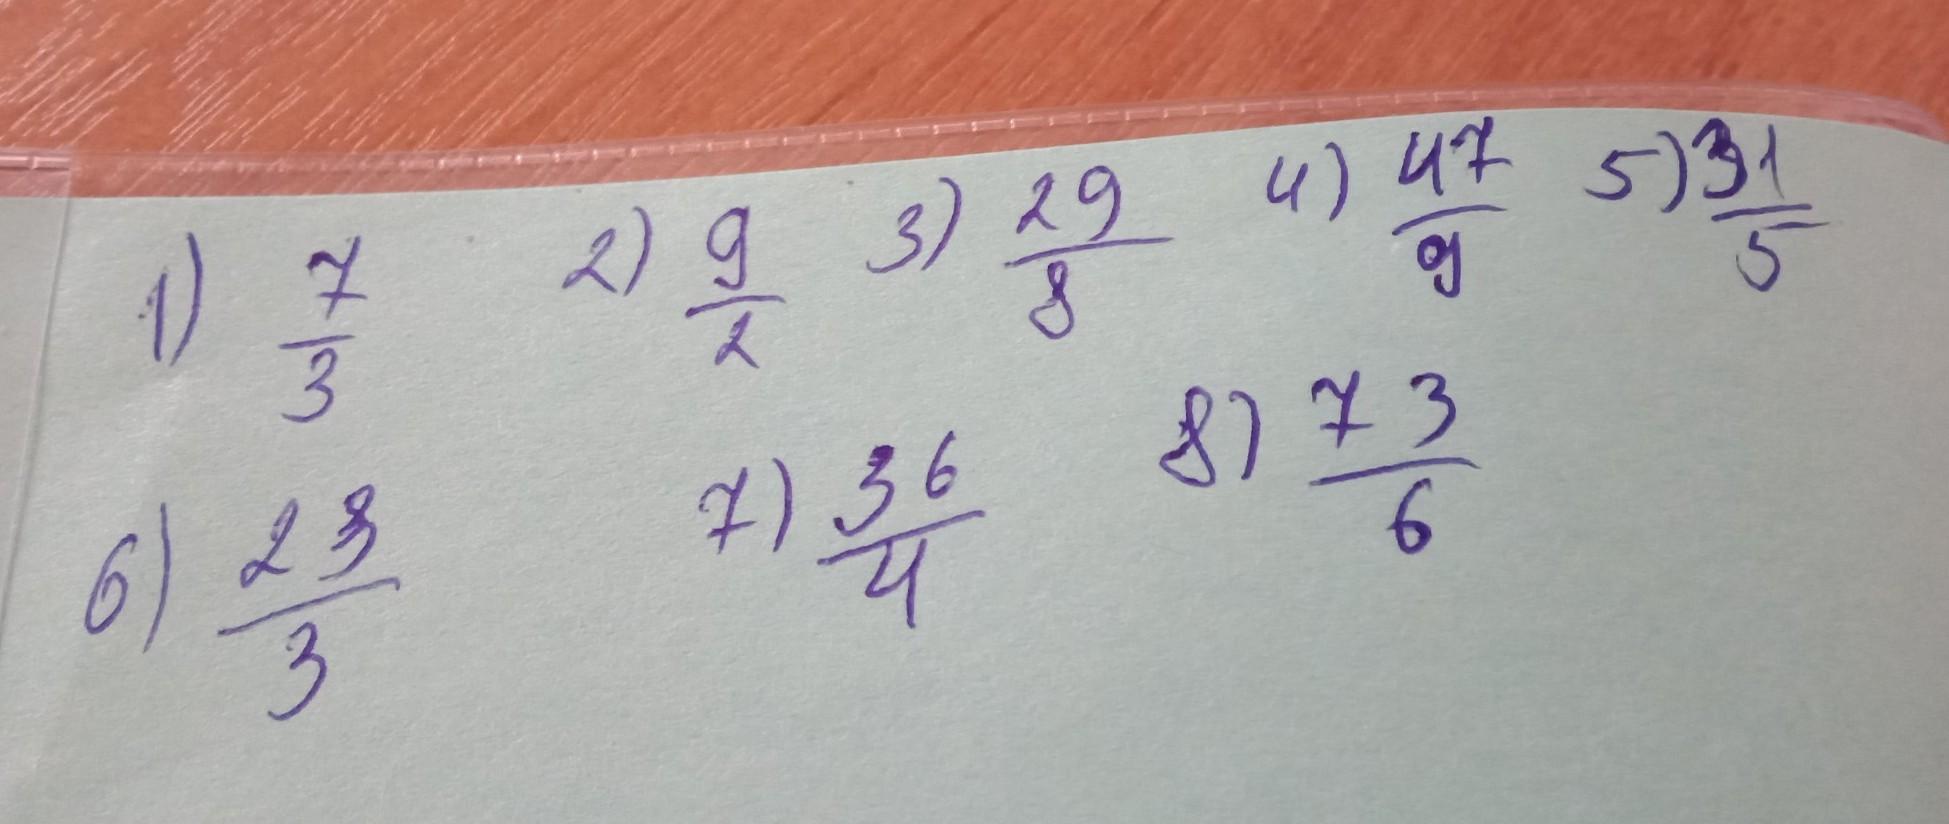 1) 7/3 2) 9/2 3) 29/8 4) 47/9 5) 31/5
6) 23/3 7) 36/4 8) 73/6